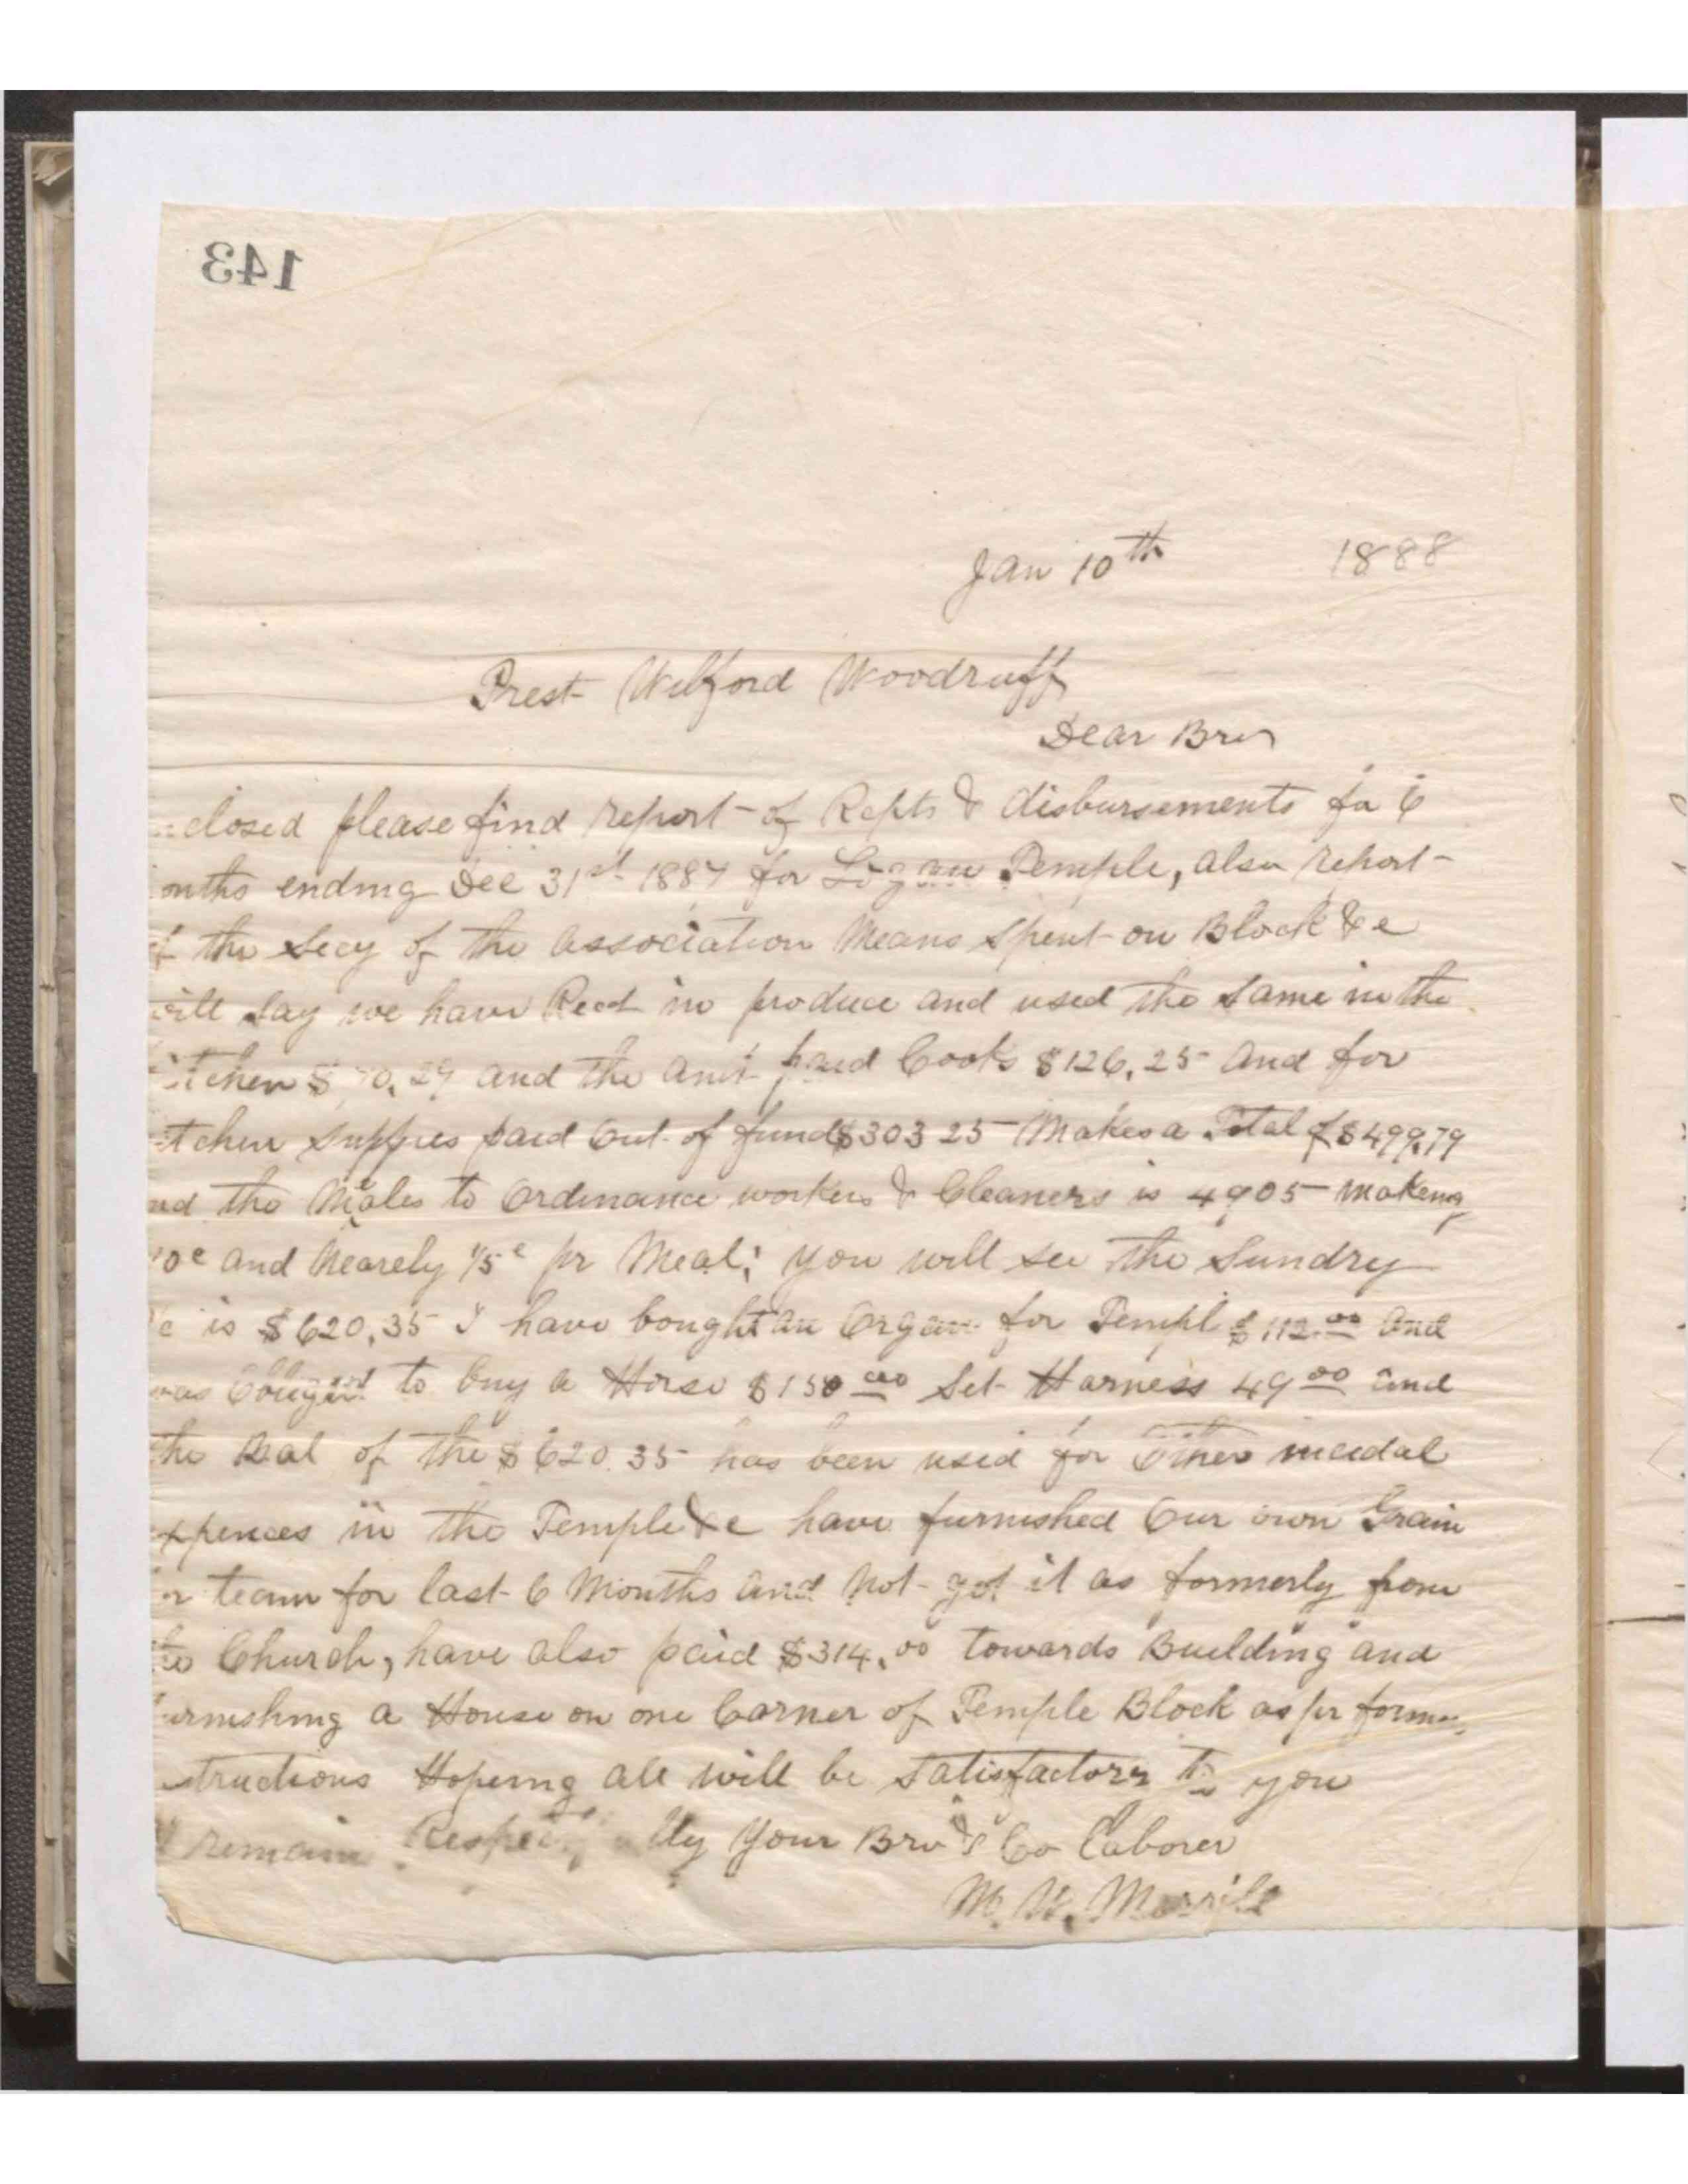 143
Jan 10th 1888
Prest Wilford Woodruff
Dear Bro
closed please find report of Repts & disbursements for 6
onths ending Dec 31st 1887 for Logan Temple, also report
of the Secy of the Association Means Spent on Block &c
will say we have Recd in produce and used the same in the
itchen $70.29 and the amt paid Cooks $126.25 and for
itchen supplies paid Out of funds $303 25 Makes a Total of $499.79
nd the Meales to Ordinance workers & Cleaners is 4905 making
10c and Nearely 1/5c pr Meal; you will see the Sundry
/c is $620.35 I have bought an Organ for Templ $112.00 and
was Obliged to buy a Horse $150 00 Set Harness 49 00 and
the Bal of the $620.35 has been used for Other
xpences in the Temple &c have furnished Our own Grain
r team for last 6 Months and Not got it as formerly from
the Church, have also paid $314.00 towards Building and
urnishing a House on one Corner of Temple Block as pr former
structions Hopeing all will be Satisfactory to you
I remain Respectfully Your Bro & Co Laborer
M. W. Merrill